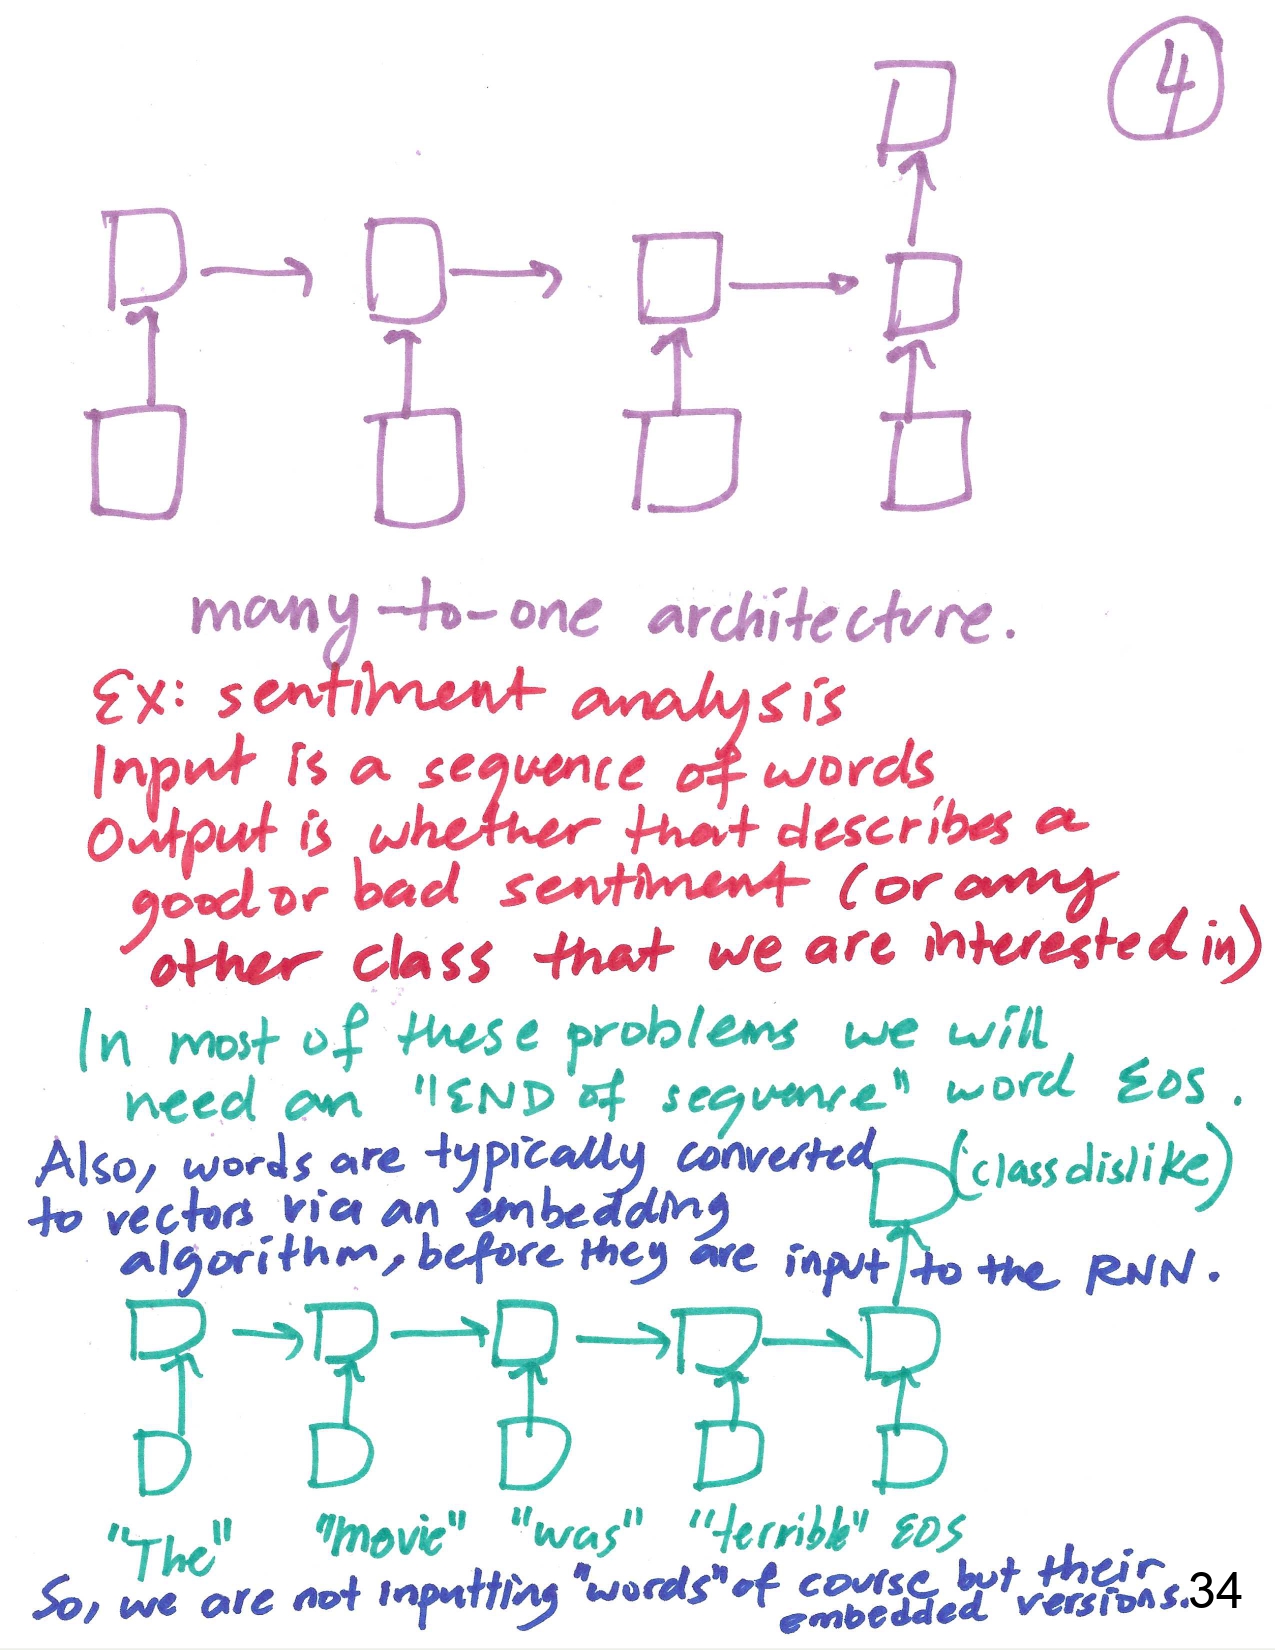 4
many-to-one architecture.
Ex: sentiment analysis
Input is a sequence of words
Output is whether that describes a
good or bad sentiment (or any
other class that we are interested in)
In most of these problems we will
need an "END of sequence" word EOS.
Also, words are typically converted
(class dislike)
to vectors via an embedding
algorithm, before they are input to the RNN.
"The" "movie" "was" "terrible" EOS
So, we are not inputting "words" of course but their
embedded versions.
34